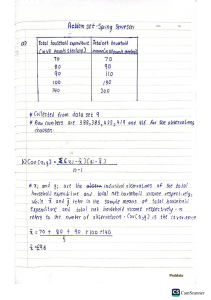 Problem set - Spring Semester
a)
Total household expenditure (in UK pounds sterling) | Total net household income (in UK pounds sterling)
70 | 70
80 | 90
90 | 110
100 | 150
140 | 200
* Collected from data set 9
* Row numbers are 388, 385, 423, 419 and for the observations chosen
b) Cov(x,y) = Σ(xi - x̄)(yi - ȳ)
n-1
* xi and yi are the individual observations of the total
household expenditure and total net household income respectively,
while x̄ and ȳ refer to the sample means of total household
expenditure and total net household income respectively - n
refers to the number of observations. Cov(x,y) is the covariance
x̄ = 70 + 80 + 90 + 100 + 140
5
CS CamScanner